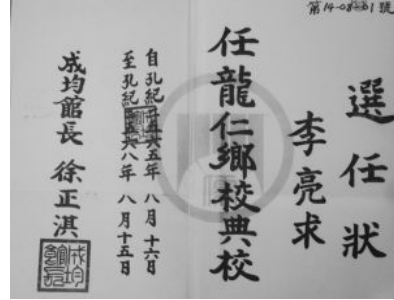 第14-08 01號
選任狀
李亮求
任龍仁鄉校典校
自孔紀 五年 八月 十六日
至孔紀 八年 八月 十五日
成均館長 徐正淇
成均
館長